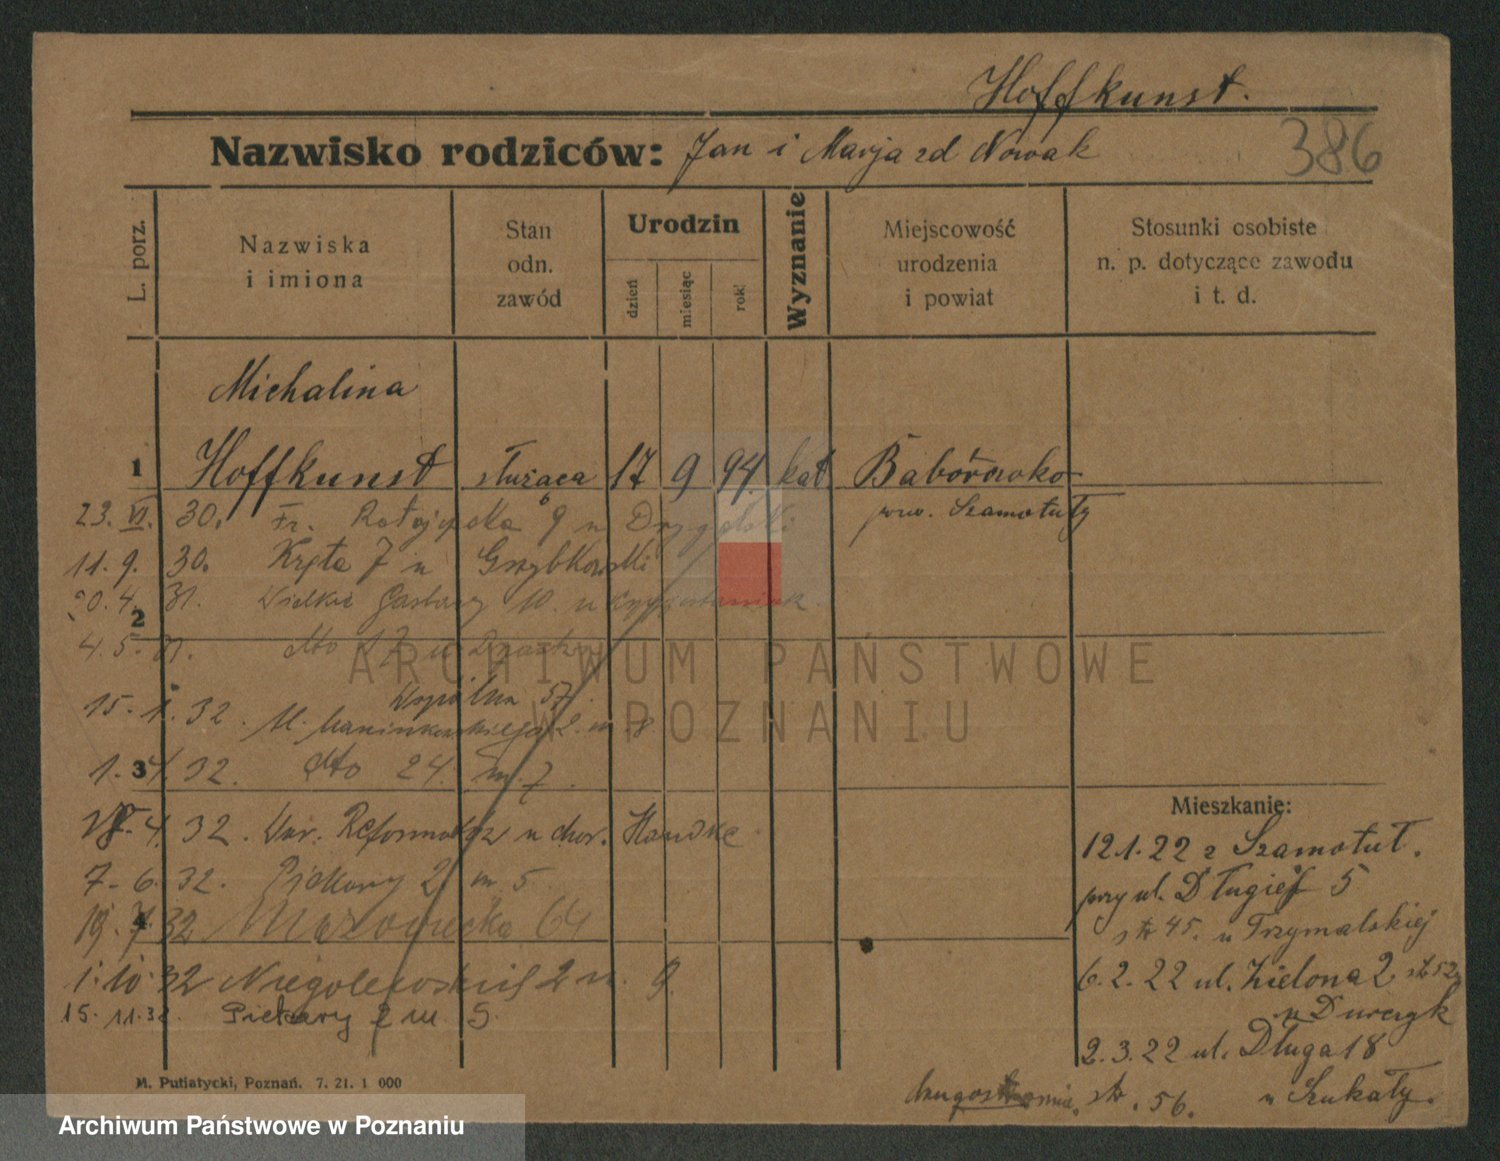 Hoffkunst.
Nazwisko rodziców: Jan i Marja zd Nowak
386
L. porz.
Nazwiska
i imiona
Stan
odn.
zawód
Urodzin
dzień
miesiąc
rok
Wyznanie
Miejscowość
urodzenia
i powiat
Stosunki osobiste
n. p. dotyczące zawodu
i t. d.
Michalina
1 Hoffkunst służąca 17 9 94. kat Baborowko
pow. Szamotuły
23. VI. 30. Fr. Ratajczaka 9 u Drygalski
11. 9. 30. Kręta 7 u Grzybkowski
20. 4. 31. Wielkie Garbary 10. u
2
4. 5. 31. dto 17 u
15. 1. 32. Wspólna 57.
M. 2. m. 8
3
1. 4. 32. dto 24. m. 7.
4. 32. Reformatów u Hauske
7. 6. 32. Piekary 2 m. 5
4
19. 7. 32 Mazowiecka 64
1. 10. 32 Niegolewskich 2 m. 9.
15. 11. 32. Piekary 2 m. 5.
Mieszkanie:
12.1.22 z Szamotuł.
przy ul. Długiej 5
str 45. u Trzymalskiej
6.2.22 ul. Zielona 2 str 52
u Durczyk
2.3.22 ul. Długa 18
str. 56. u Szukały.
M. Putiatycki, Poznań. 7. 21. 1 000
ARCHIWUM PAŃSTWOWE
W POZNANIU
Archiwum Państwowe w Poznaniu